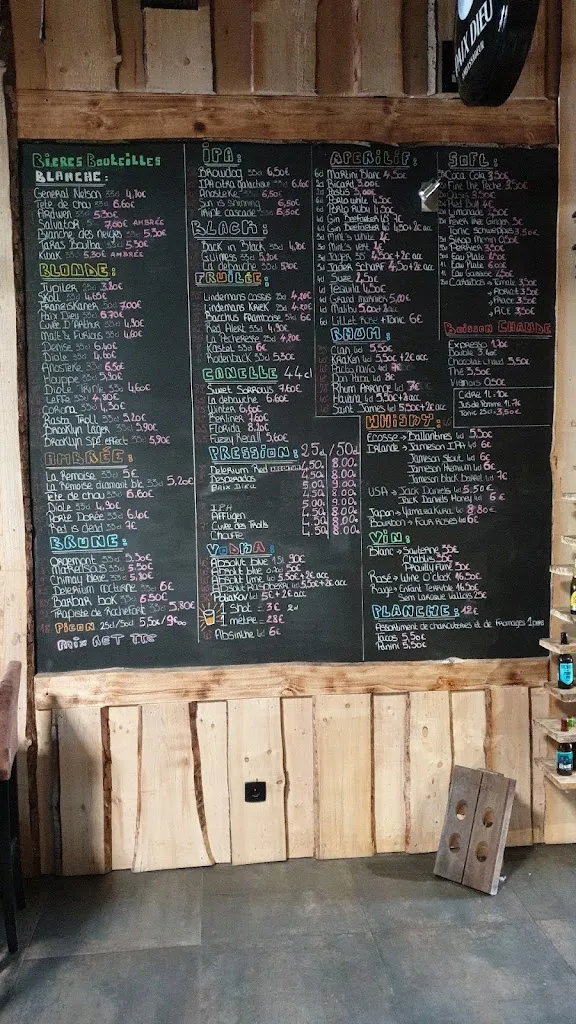 PAIX DIEU
Bières Bouteilles
BLANCHE:
General Nelson 33cl 4,10€
Tete de chou 33cl 6.60€
Ardwen 33cl 5.30€
Salvator 7,00€ AMBRÉE
Blanche des neiges 33cl 5.30€
Taras Boulba 33cl 5.50€
Kwak 33cl 5.30€ AMBRÉE
BLONDE:
Jupiler 3.20€
Skoll 4.65€
Franziskaner 7.00€
Paix Dieu 6.70€
Cuvée D'Arthur 4.90€
Malt & Furious 4.60€
Denise 6.60€
Diole 4.60€
Anosteké 6.50€
Houppe 5.50€
Diole Triple 4.60€
Leffe 4,80€
Corona 4,50€
Rasta Troll 5.20€
Brooklyn Lager 5.90€
Brooklyn Spé effect 5,90€
AMBRÉE:
La Remoise 33cl 5€
La Remoise diamant blc 33cl 5,20€
Tete de chou 33cl 6.60€
Diole 4,90€
Porte Dorée 33cl 6.40€
Red is dead 7€
BRUNE:
Orgemont 33cl 5,30€
Maredsous 33cl 5.50€
Chimay bleue 33cl 5,70€
Delerium nocturne 33cl 6€
Barbar bok 33cl 6,50€
Trapiste de Rochefort 33cl 5,80€
Picon 25cl/50cl 5,50/9€00
PRIX NET TTC
IPA:
Brewdog 33cl 6,50€
IPA otra galactique 33cl 6.60€
Anosteke 33cl 6,50€
Sun is shinning 6,50€
Triple cascade 33cl 6,50€
BLACK:
Back in Black 33cl 4,90€
Guiness 33cl 5,20€
La debauche 33cl 5,70€
FRUITÉE:
Lindemans Cassis 25cl 4,20€
Lindemans Kriek 25cl 4.20€
Bacchus Framboise 37cl 6€
Red Alert 33cl 4.90€
La Pecheresse 25cl 4.20€
Kasteel 33cl 6€
Rodenback 33cl 5,50€
CANELLE 44cl
Sweet Sorrows 7.60€
La debauche 6.60€
Winter 6.60€
Berliner 7.60€
Florida 8.20€
Fuzzey Recall 5.60€
PRESSION: 25cl /50cl
Delerium Red 4.50 8.00€
Desperados 4.50 8.00€
Paix Dieu 5.00 9.00€
IPA 4.50 8.00€
Affligen 4.50 8.00€
Cuvée des Trolls 4.50 8.00€
Chouffe 4.50 8.00€
VODKA:
Absolut blue 70cl 90€
Absolut blue 4cl 50€
Absolut lime 4cl 5.50€+2€ acc
Absolut Raspberry 4cl 5.50€+2€ acc
Poliakov 4cl 5€+2€ acc
1 Shot = 3€ 2cl
1 mètre = 28€
Absinthe 4cl 6€
APÉRITIF:
6cl Martini Blanc 4.50€
2cl Ricard 3.00€
2cl Pastis 3,00€
6cl Porto White 4.50€
6cl Porto Ruby 4.50€
4cl Gin Beefeater 7€
4cl Gin Beefeater 4cl 4.50+2€ acc
3cl Mint's white 2€
3cl Mint's vert 2€
4cl Jager 35 4,50€+2€ acc
4cl Jager Scharf 4,50€+2€ acc
4cl Suze 2,50€
4cl Tequila 4,50€
4cl Grand Marnier 5,00€
4cl Malibu 5.00€+2€ acc
Lillet Rose+Tonic 6€
RHUM:
Clan 4cl 5,50€
Kraken 4cl 5.50€+2€ acc
Pacto Navio 4cl 7€
Don Papa 4cl 8€
Rhum Arrangé 4cl 7€
Havana 4cl 5.50€+2€ acc
Saint James 4cl 5.50€+2€ acc
WHISKY:
Ecosse → Ballantines 4cl 5,50€
Irlande → Jameson IPA 4cl 6€
Jameson Stout 4cl 6€
Jameson Premium 4cl 6€
Jameson black barrel 4cl 7€
USA → Jack Daniels 4cl 5.50€
Jack Daniels Honey 4cl 6€
Japon → Yamazakura 4cl 8.80€
Bourbon → Four roses 4cl 6€
VIN:
Blanc → Sauterne 35€
Chablis 30€
Pouilly Fumé 30€
Rosé → Wine O'clock 16,50€
Rouge → Enfant Terrible 16,50€
PLANCHE: 12€
Assortiment de charcuteries et de fromages
Tacos 5,50€
Panini 5,50€
SOFT:
Coca Cola 3,50€
Fuze the Pêche 3,50€
Red Bull 4€
Lemonade 2,50€
Fever tree Ginger 5€
Tonic Schweppes 3,50€
Sirop Menth 1,00€
Perrier 3,50€
Eau Plate 4,00€
Eau Plate 6,00€
Eau Gazeuse 4,50€
Caraïbos → Tomate 3,50€
→ Abricot 3,50€
→ Ananas 3,50€
→ ACE 3,50€
Boisson CHAUDE
Expresso 1.70€
Double 3.40€
Chocolat chaud 3,50€
Thé 3,50€
Viennois 0,50€
CIDRE 1L: 10€
Jus de Pomme 1L: 7€
Tonic 25cl: 3,50€